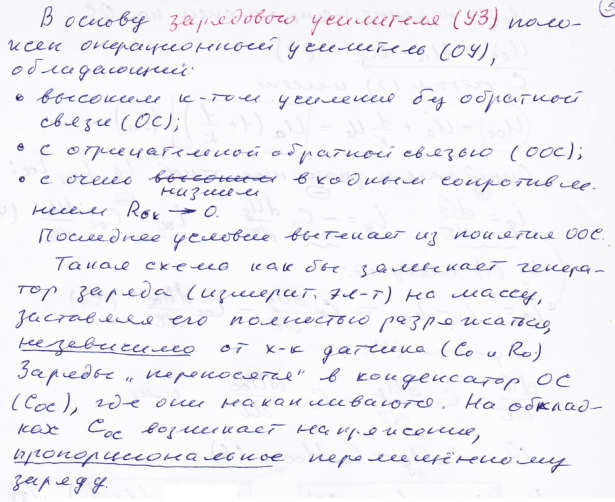 3
В основу зарядового усилителя (УЗ) поло-
жен операционный усилитель (ОУ),
обладающий:
• высоким к-том усиления без обратной
связи (ОС);
• с отрицательной обратной связью (ООС);
• с очень высоким входным сопротивле-
низким
нием Rвх → 0.
Последнее условие вытекает из понятия ООС.
Такая схема как бы замыкает генера-
тор заряда (измерит. эл-т) на массу,
заставляя его полностью разряжаться,
независимо от х-к датчика (C₀ и R₀)
Заряды „переносятся" в конденсатор ОС
(Cос), где они накапливаются. На обклад-
ках Cос возникает напряжение,
пропорциональное перемещённому
заряду.